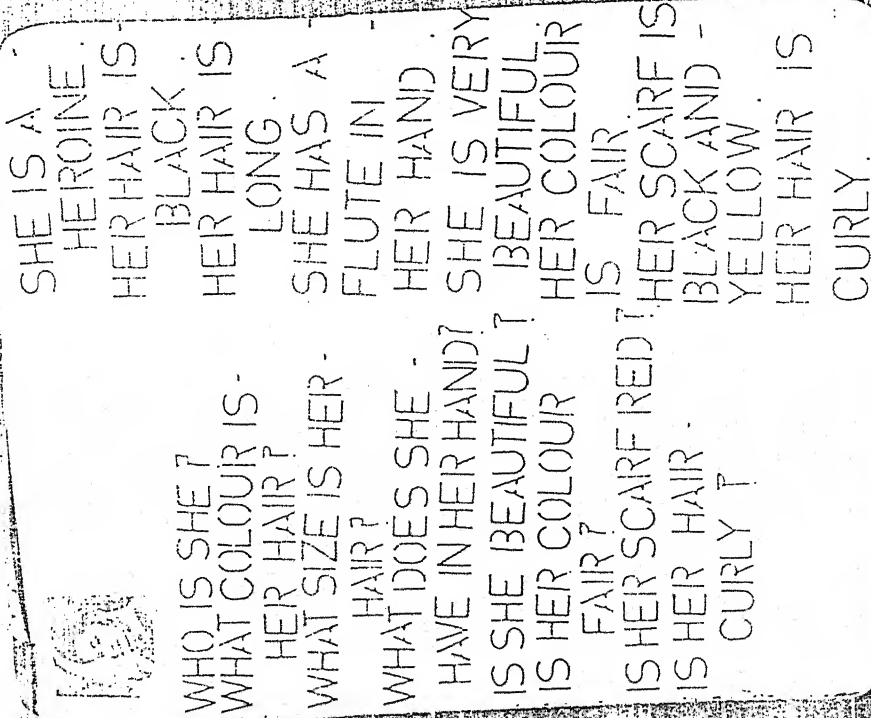 WHO IS SHE?
WHAT COLOUR IS-
HER HAIR?
WHAT SIZE IS HER-
HAIR?
WHAT DOES SHE-
HAVE IN HER HAND?
IS SHE BEAUTIFUL?
IS HER COLOUR
FAIR?
IS HER SCARF RED?
IS HER HAIR-
CURLY?
SHE IS A-
HEROINE.
HER HAIR IS-
BLACK.
HER HAIR IS
LONG.
SHE HAS A-
FLUTE IN
HER HAND.
SHE IS VERY
BEAUTIFUL.
HER COLOUR
IS FAIR.
HER SCARF IS
BLACK AND-
YELLOW.
HER HAIR IS
CURLY.